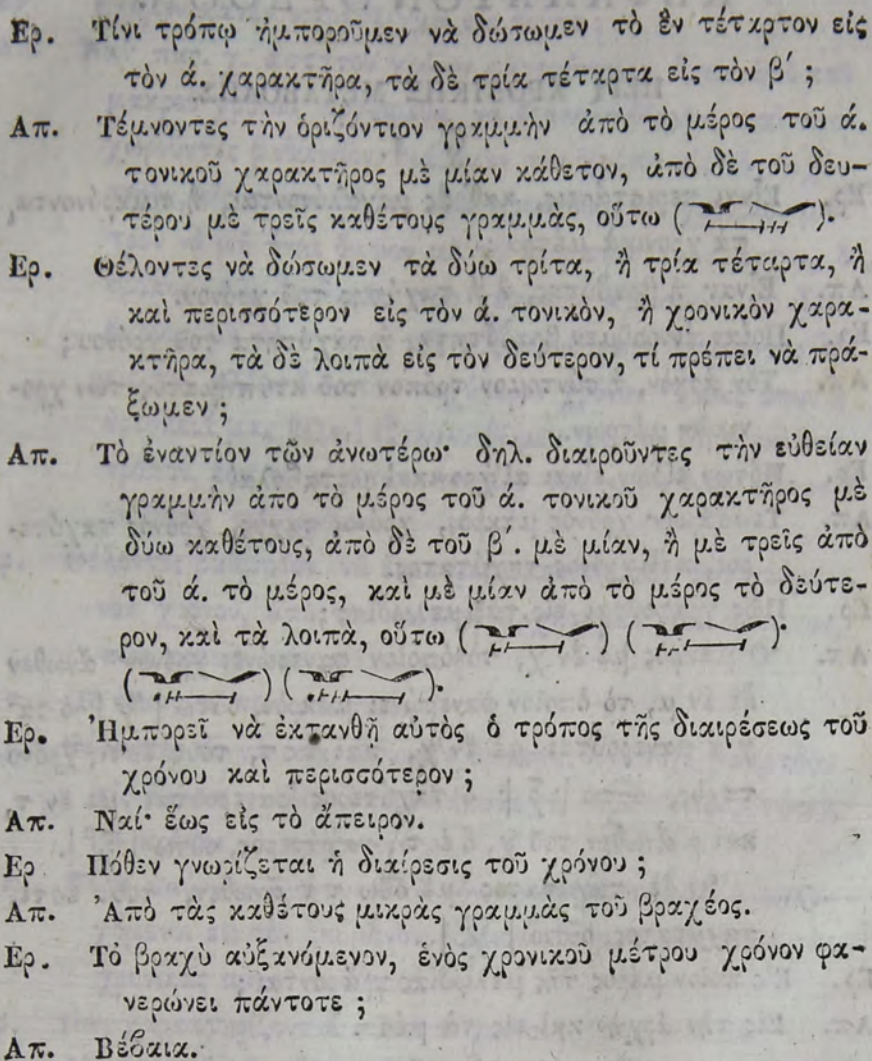 Ερ. Τίνι τρόπῳ ἠμποροῦμεν νὰ δώσωμεν τὸ ἓν τέταρτον εἰς
τὸν ά. χαρακτῆρα, τὰ δὲ τρία τέταρτα εἰς τὸν β΄ ;
Απ. Τέμνοντες τὴν ὁριζόντιον γραμμὴν ἀπὸ τὸ μέρος τοῦ ά.
τονικοῦ χαρακτῆρος μὲ μίαν κάθετον, ἀπὸ δὲ τοῦ δευ-
τέρου μὲ τρεῖς καθέτους γραμμὰς, οὕτω ( ).
Ερ. Θέλοντες νὰ δώσωμεν τὰ δύω τρίτα, ἢ τρία τέταρτα, ἢ
καὶ περισσότερον εἰς τὸν ά. τονικὸν, ἢ χρονικὸν χαρα-
κτῆρα, τὰ δὲ λοιπὰ εἰς τὸν δεύτερον, τί πρέπει νὰ πρά-
ξωμεν ;
Απ. Τὸ ἐναντίον τῶν ἀνωτέρω· δηλ. διαιροῦντες τὴν εὐθείαν
γραμμὴν ἀπο τὸ μέρος τοῦ ά. τονικοῦ χαρακτῆρος μὲ
δύω καθέτους, ἀπὸ δὲ τοῦ β΄. μὲ μίαν, ἢ μὲ τρεῖς ἀπὸ
τοῦ ά. τὸ μέρος, καὶ μὲ μίαν ἀπὸ τὸ μέρος τὸ δεύτε-
ρον, καὶ τὰ λοιπὰ, οὕτω ( ) ( )·
( ) ( ).
Ερ. Ἠμπορεῖ νὰ ἐκτανθῇ αὐτὸς ὁ τρόπος τῆς διαιρέσεως τοῦ
χρόνου καὶ περισσότερον ;
Απ. Ναί· ἕως εἰς τὸ ἄπειρον.
Ερ Πόθεν γνωρίζεται ἡ διαίρεσις τοῦ χρόνου ;
Απ. Ἀπὸ τὰς καθέτους μικρὰς γραμμὰς τοῦ βραχέος.
Ερ. Τὸ βραχὺ αὐξανόμενον, ἑνὸς χρονικοῦ μέτρου χρόνον φα-
νερώνει πάντοτε ;
Απ. Βέβαια.